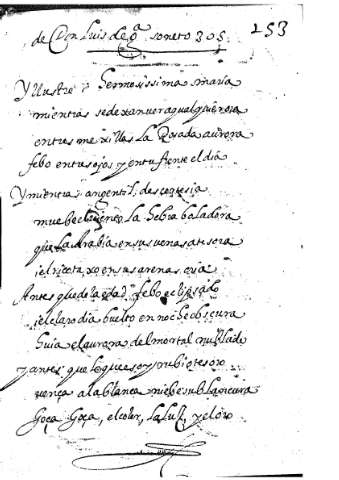 de Don Luis de gª soneto 305
253
Yllustre y Hermosissima maria
mientras se dexan ver a qualquier ora
en tus mexillas La Rosada aurora
febo en tus ojos y en tu frente el dia
Y mientras con gentil descortesia
muebe el viento la Hebra boladora
que La Arabia en sus venas atesora
i el rico taxo en sus arenas cria
Antes que de la edad febo eclipsado
i el claro dia buelto en noche obscura
Huia el aurora del mortal nublado
y antes que lo que es oy rubio tesoro
vença a la blanca niebe su blancura
Goça Goça, el color, La Luz, y el oro